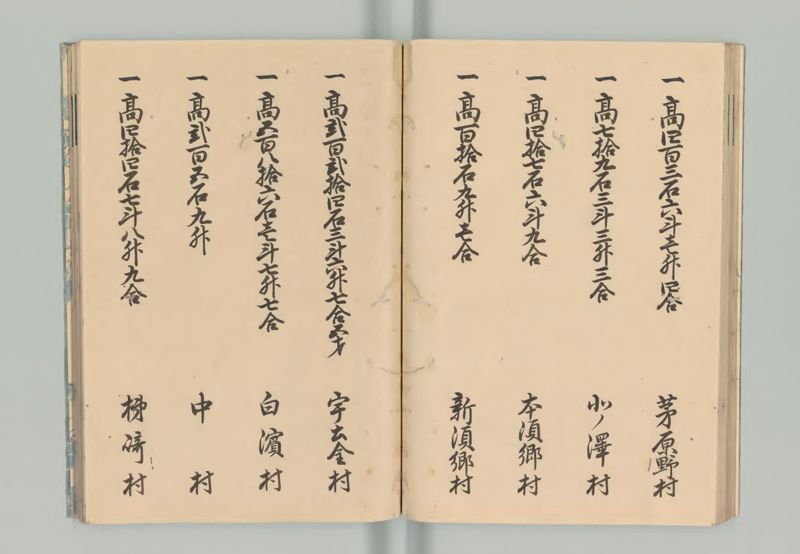 一高四百三石六斗壱升四合 茅原野村
一高七拾九石三斗三升三合 北ノ澤村
一高四拾七石六斗九合 本須郷村
一高百拾石九升壱合 新須郷村
一高弐百弐拾四石三斗六升七合五才 宇土金村
一高五百八拾六石壱斗七升七合 白濱村
一高弐百五石九升 中村
一高四拾四石七斗八升九合 柿﨑村